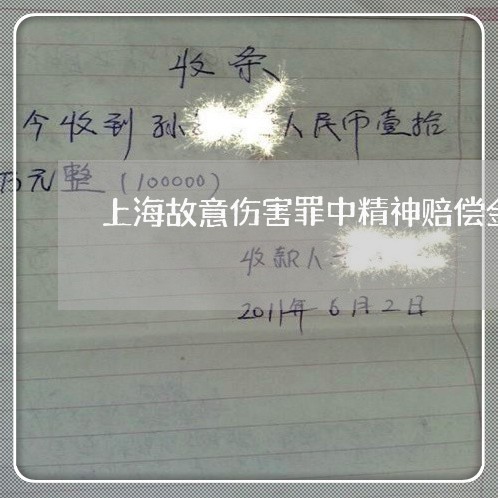 收条
今收到孙 人民币壹拾
万元整(100000)
上海故意伤害罪中精神赔偿金
收款人
2011年6月2日